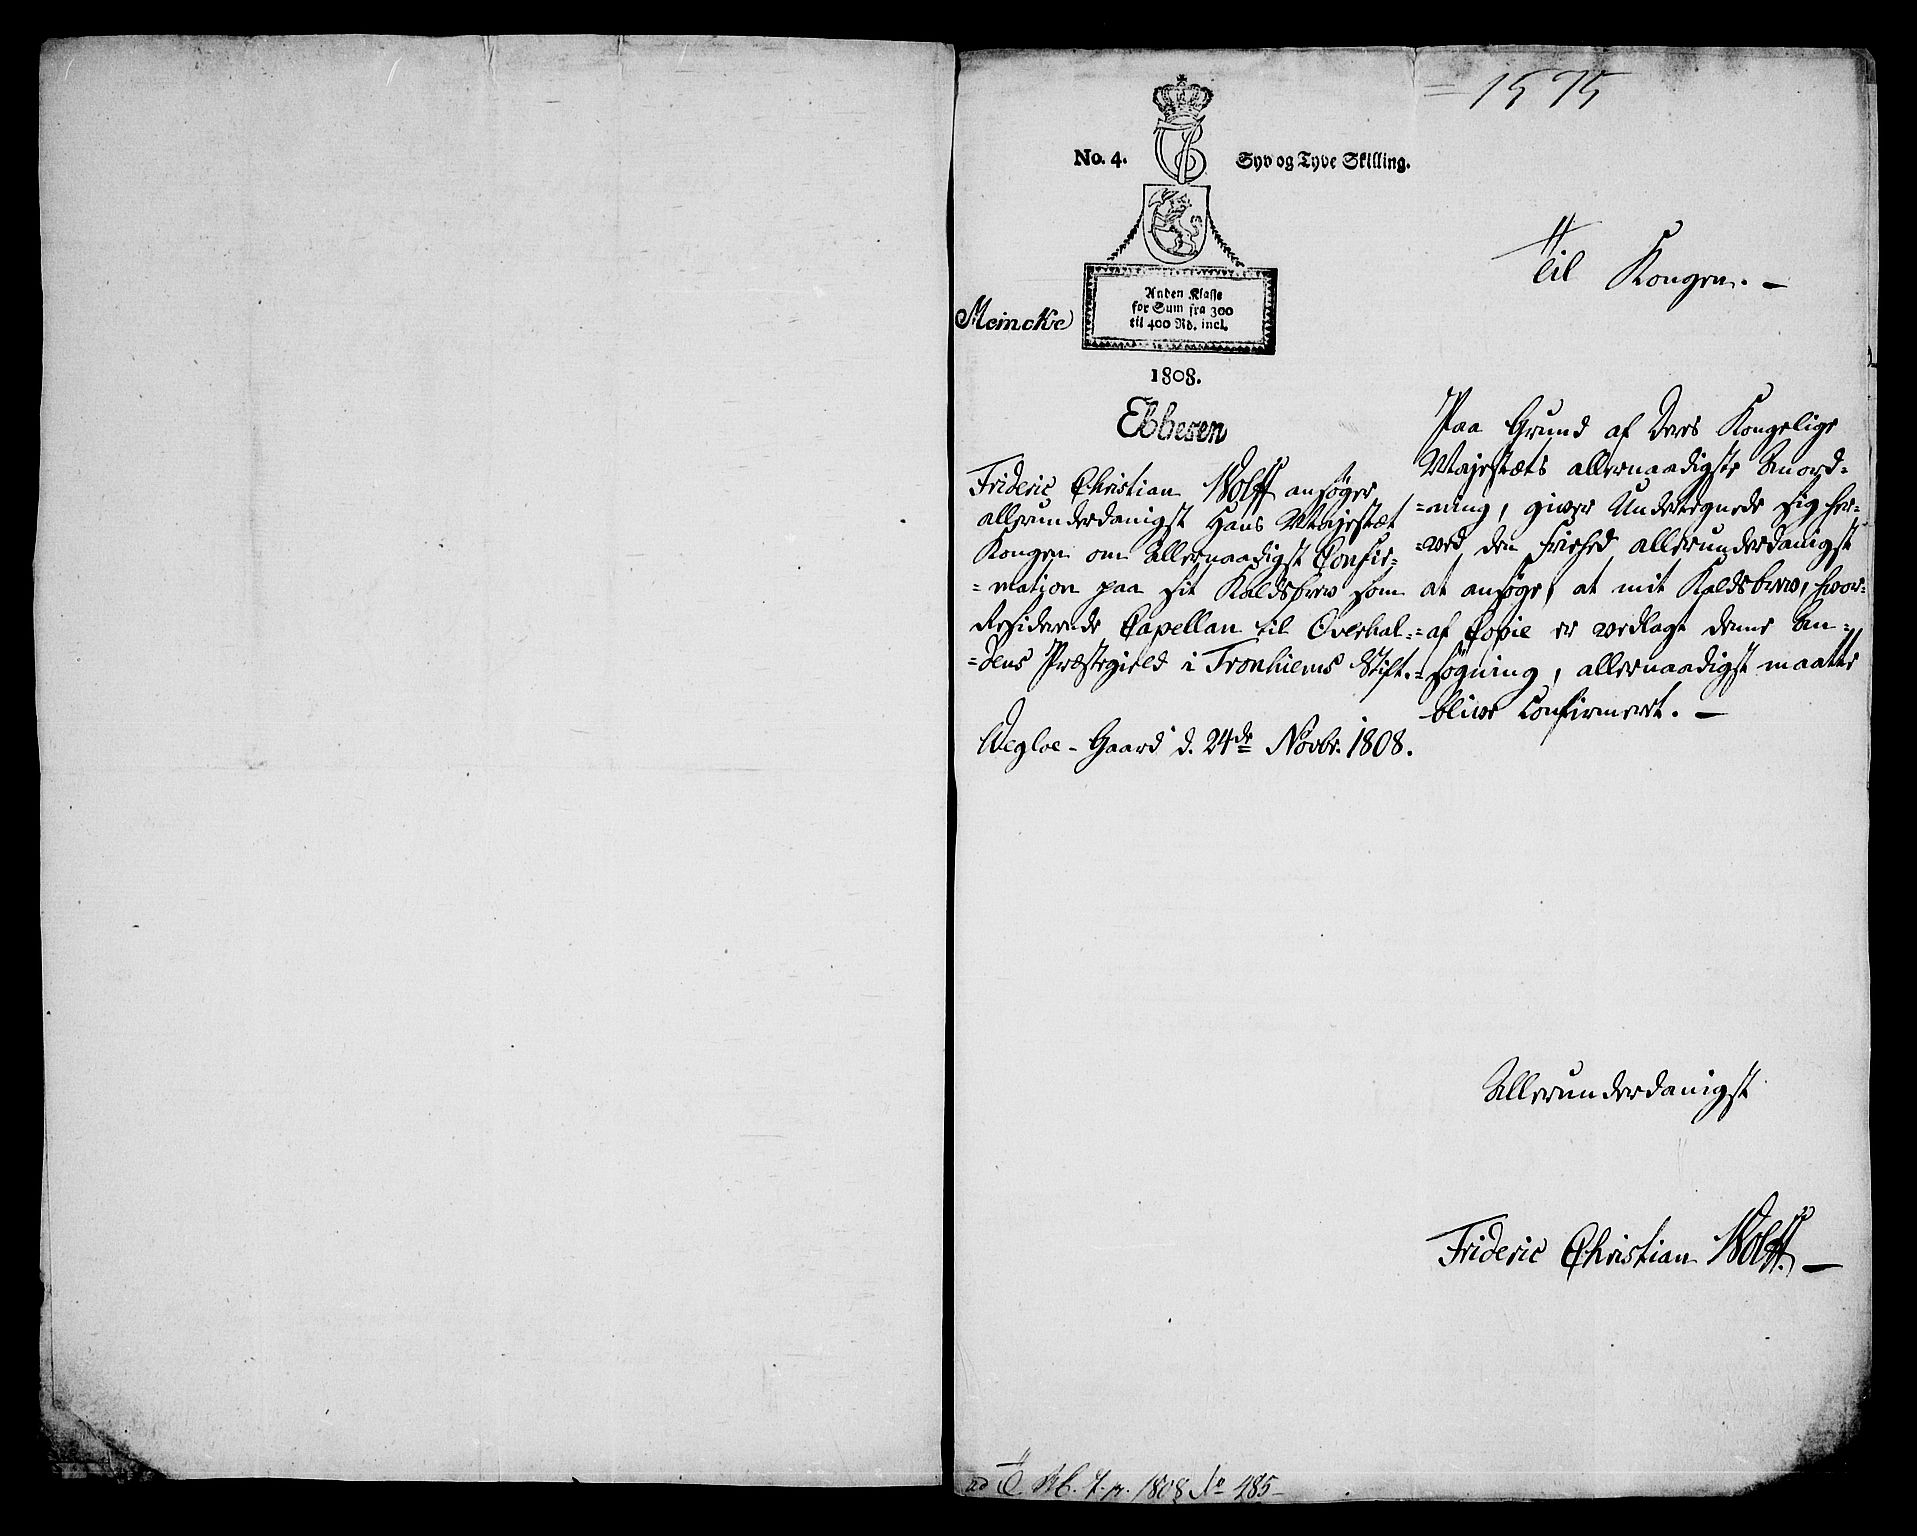 1575
No. 4. Syv og Tyve Skilling.
Anden Klasse
for Sum fra 300
til 400 Rd. incl.
Meincke
1808.
Ebbesen
Frideric Christian Wolff ansøger
allerunderdanigst Hans Majestæt
Kongen om Allernaadigst Confir-
-mation paa sit Kaldsbrev som
Residerende Capellan til Overhal-
-dens Præstegield i Tronhiems Stift.
Wegloe-Gaard d. 24de Novbr. 1808.
Til Kongen. -
Paa Grund af Deres Kongelige
Majestæts allernaadigste Anord-
-ning, giver Undertegnede sig her-
-ved den Friehed allerunderdanigst
at ansøge, at mit Kaldsbrev, hvor-
-af Copie er vedlagt denne An-
-søgning, allernaadigst maatte
blive Confirmeret. -
Allerunderdanigst
Frideric Christian Wolff. -
1808 No 485